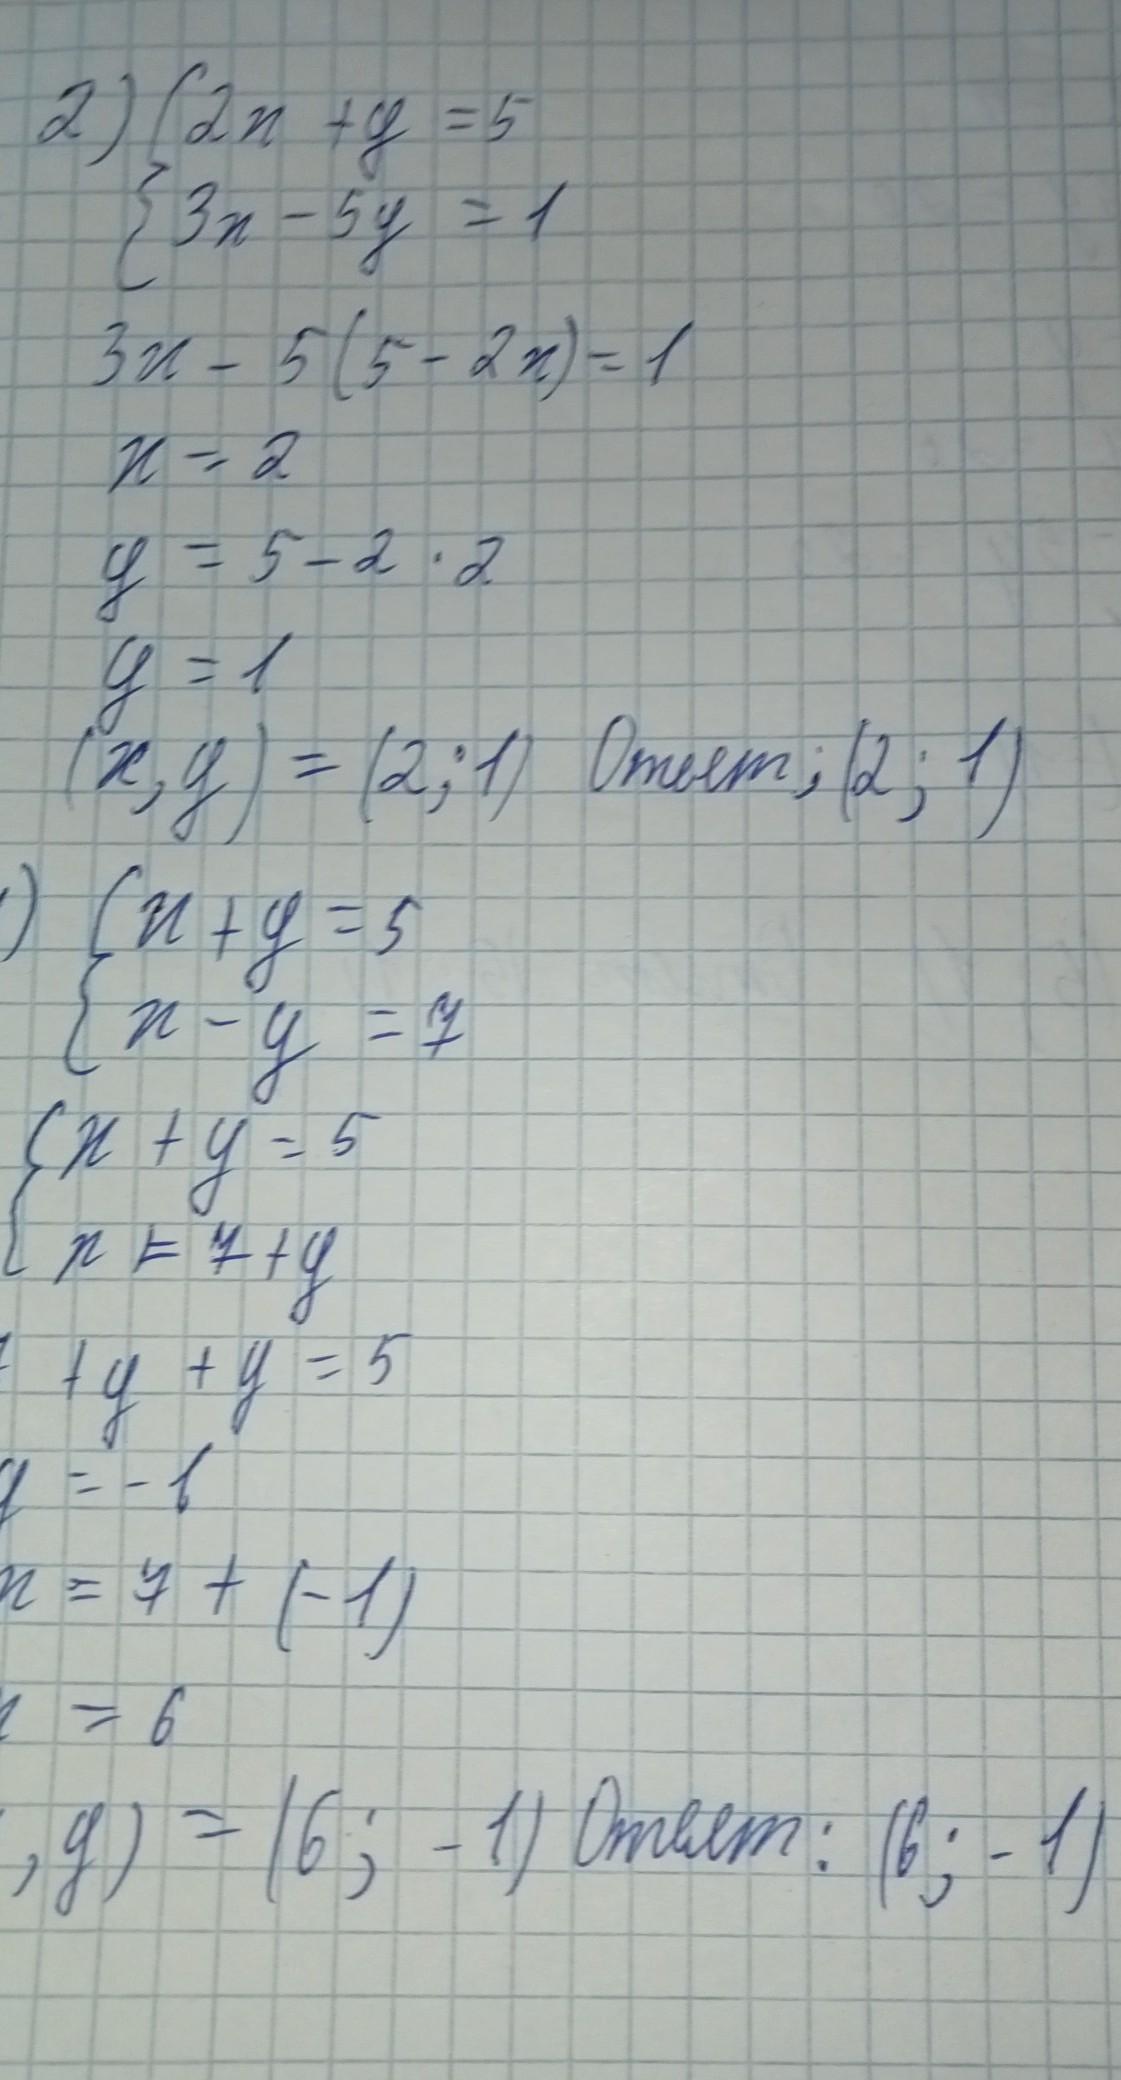 2) { 2x + y = 5
3x - 5y = 1
3x - 5(5 - 2x) = 1
x = 2
y = 5 - 2 · 2
y = 1
(x, y) = (2; 1) Ответ; (2; 1)
) { x + y = 5
x - y = 7
{ x + y = 5
x = 7 + y
+ y + y = 5
y = -1
x = 7 + (-1)
x = 6
, y) = (6; -1) Ответ: (6; -1)